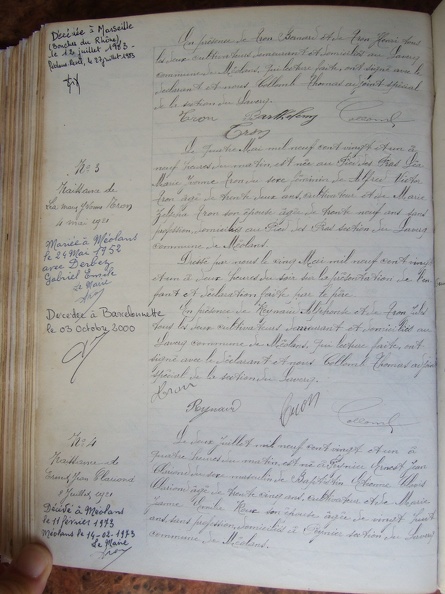 Décédé à Marseille
(Bouches du Rhône)
le 12 juillet 1983.
En présence de Tron Bernard et de Tron Henri tous
les deux cultivateurs demeurant et domiciliés au Laverq
commune de Méolans, qui lecture faite, ont signé avec le
déclarant et nous Collomb Thomas adjoint spécial
de la section du Laverq.
Tron Barthélemy Collomb
Tron
N° 3
Naissance de
Tron
4 mai 1921
Mariée à Méolans
le 24 Mai 1952
avec Derbez
Gabriel
le Maire
Décédée à Barcelonnette
le 03 Octobre 2000
Le quatre Mai mil neuf cent vingt et un à
neuf heures du matin est née au Pied des Pras
Marie Yvonne Tron de sexe féminin de Alfred Victor
Tron âgé de trente deux ans, cultivateur et de Marie
Tron son épouse âgée de trente neuf ans sans
profession, domiciliés au Pied des Pras section du Laverq
commune de Méolans.
Dressé par nous le cinq Mai mil neuf cent vingt
et un à deux heures du soir sur la présentation de l'en
fant et déclaration faite par le père.
En présence de Reynaud Alphonse et de Tron Jules
tous les deux cultivateurs demeurant et domiciliés au
Laverq commune de Méolans, qui lecture faite, ont
signé avec le déclarant et nous Collomb Thomas adjoint
spécial de la section du Laverq.
Tron
Reynaud Tron Collomb
N° 4
Naissance de
Juillet 1921
Décédé à Méolans
le 11 février 1973
Méolans le 14-02-1973
Le Maire
Le deux Juillet mil neuf cent vingt et un à
quatre heures du matin, est né à Ernest Jean
de sexe masculin de Baptistin
âgé de trente cinq ans, cultivateur et de Marie
Jeanne Roux son épouse âgée de vingt huit
ans, sans profession, domiciliés à section du Laverq
commune de Méolans.